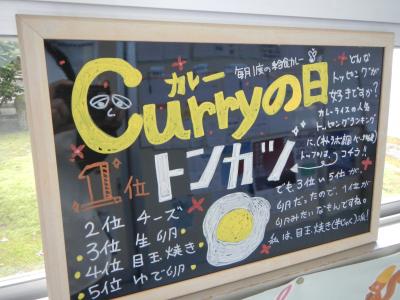 カレー
Curryの日
毎月1度の給食カレー
どんな
トッピングが
好きですか?
カレーライスの人気
トッピングランキング
トップ5は、コチラ!
1位
トンカツ
2位 チーズ
3位 生卵
4位 目玉焼き
5位 ゆで卵
でも3位 5位が、
卵だったので、1位が
卵みたいなもんですね。
私は、目玉焼き(半じゅく)派!